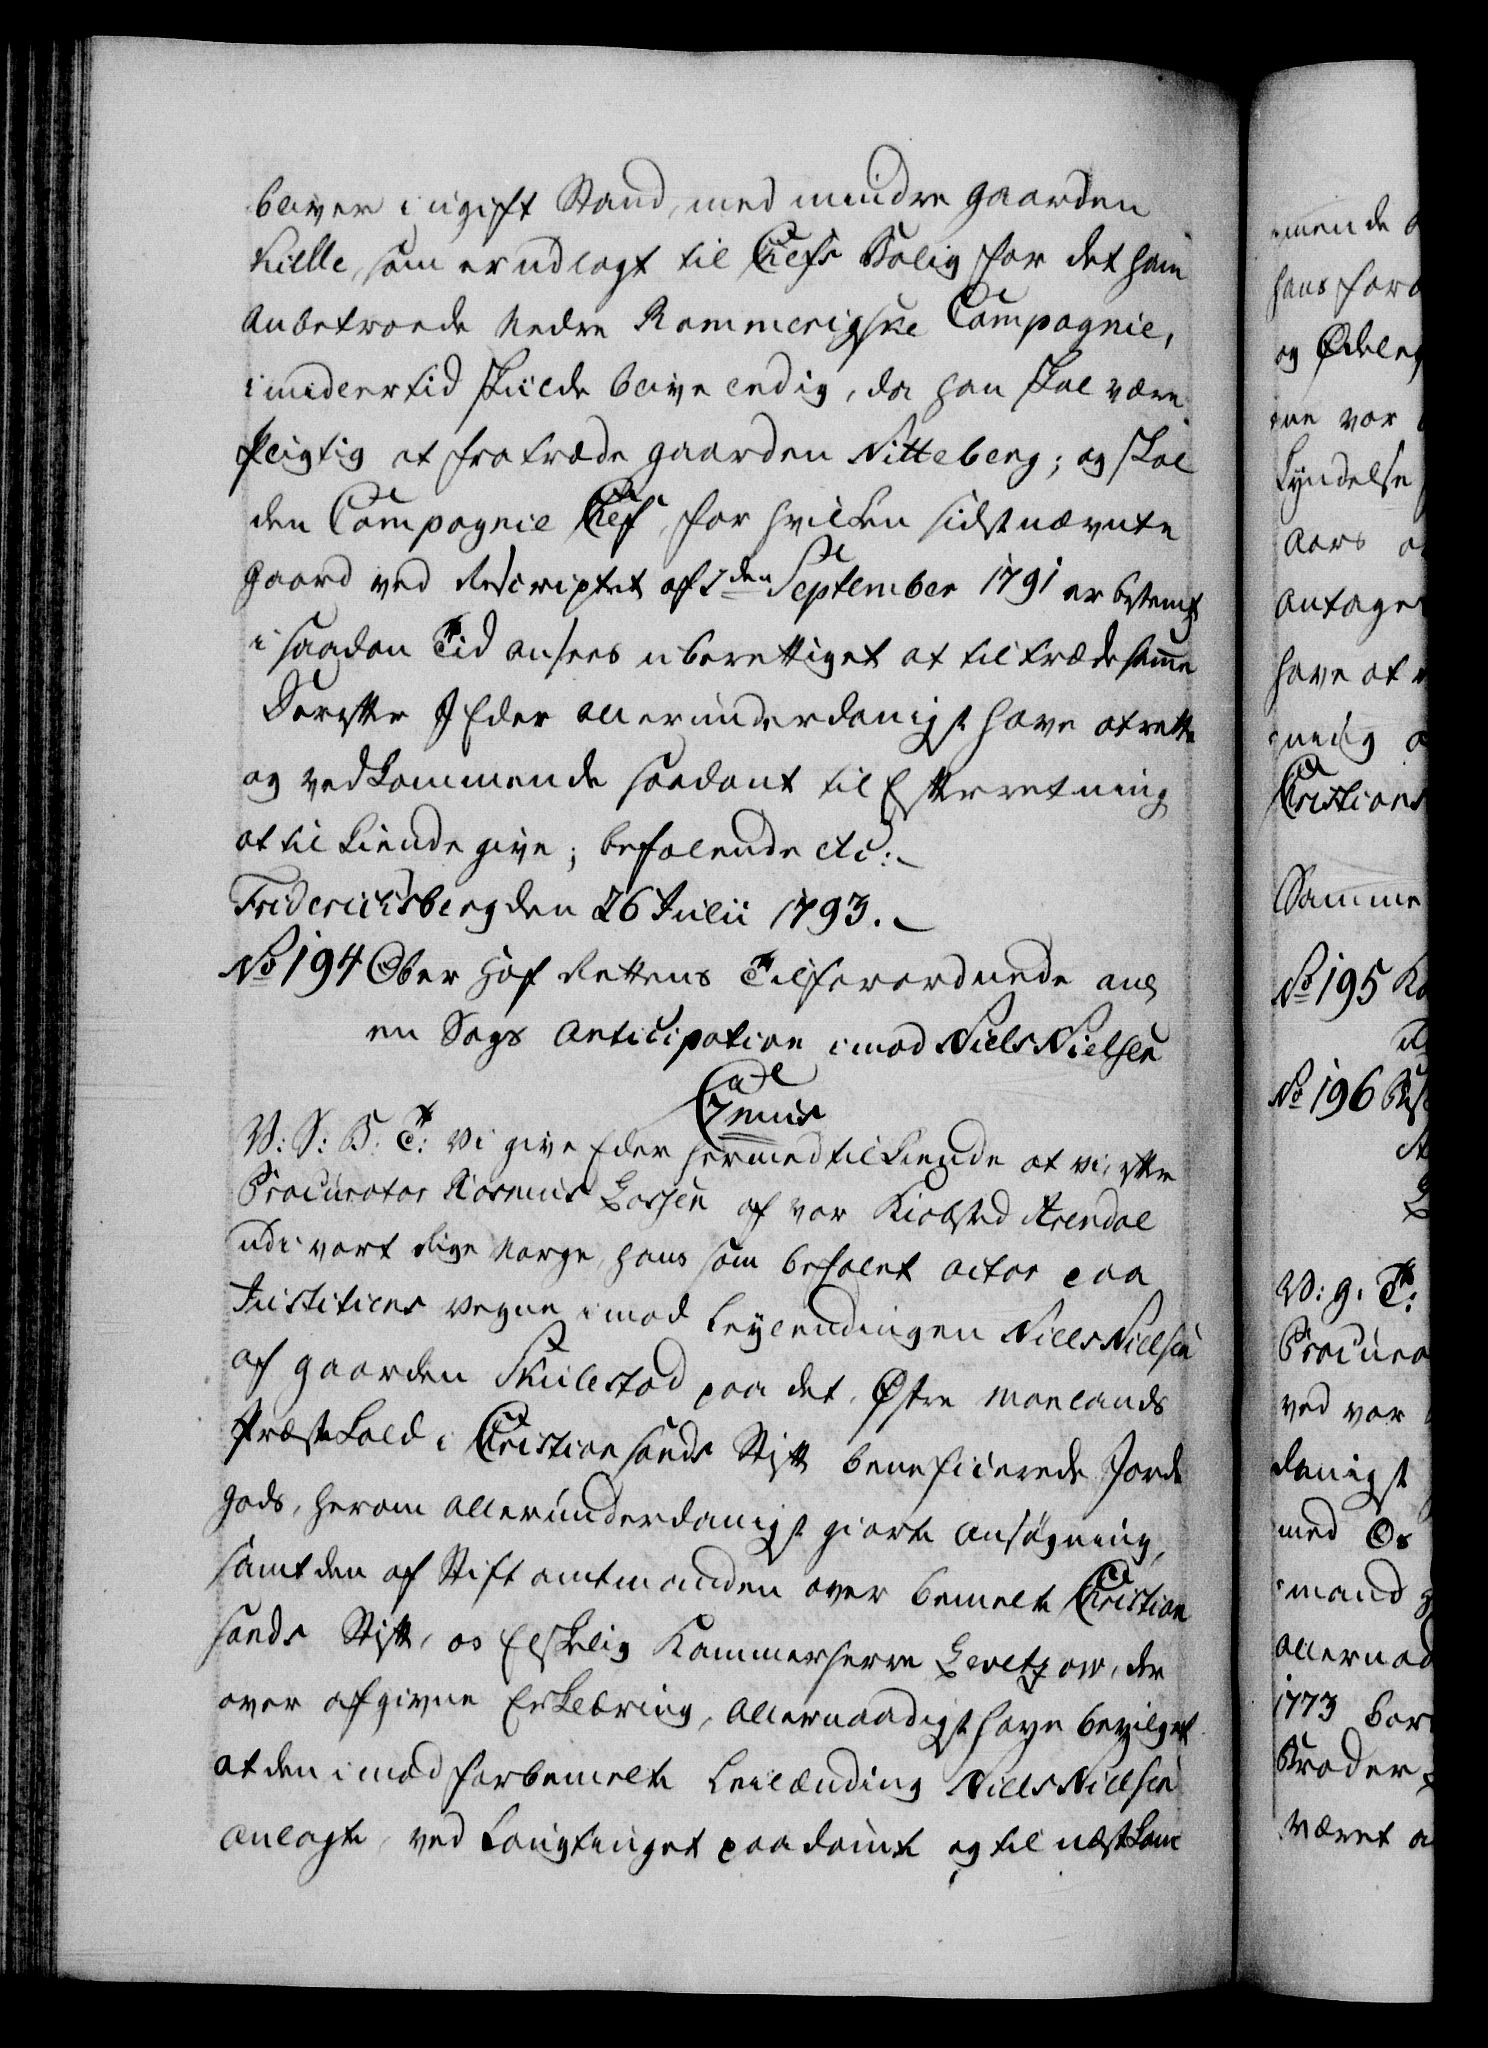 bliver i ugift Stand, med mindre Gaarden
Kielle, som er udlagt til Chefs Bolig for det ham
anbetroede Nedre Rommerigske Compagnie,
imidlertid skulde blive ledig, da han skal være
pligtig at fratræde Gaarden Nitteberg; og skal
den Compagnie Chef, for hvilken sidstnævnte
Gaard ved Rescriptet af 2den September 1791 er bestemt
i saadan Tid ansees uberettiget at tiltræde samme
Derefter I Eder allerunderdanigst have at rette
og vedkommende saadant til Efterretning
at tilkiendegive; befalende etc:
Friderichsberg den 26 Julii 1793.
No 194 Ober Hof Rettens Tilforordnede ang
en Sags Anticipation imod Niels Nielsen
V: S: B: T: Vi give Eder hermed tilkiende at vi, efter
Procurator Rasmus Lassen af vor Kiøbsted Arendal
udi vort Rige Norge, hans som befalet Actor paa
Justitiens Vegne imod Leylendingen Niels Nielsen
af Gaarden Skulestad paa det Østre Molands
Præstekald i Christiansands Stift beneficierede Jorde
Gods, herom allerunderdanigst giorte Ansøgning,
samt den af Stiftamtmanden over bemelte Christian
sands Stift, os Elskelig Kammerherre Levetzow, der
over afgivne Erklæring, allernaadigst have bevilget
at den imod forbemelte Leilænding Niels Nielsen
anlagte, ved Laugtinget paadømte og til næstkom

mende
hans forb
og Ødeleg
ne var
Kyndelse
Aars
antage
have at
nedig
Christians
Samme
No 195
No 196
V: G: T:
Procura
ved vor
danigst
med Os
mand
allernaad
1773 bor
Broder
været